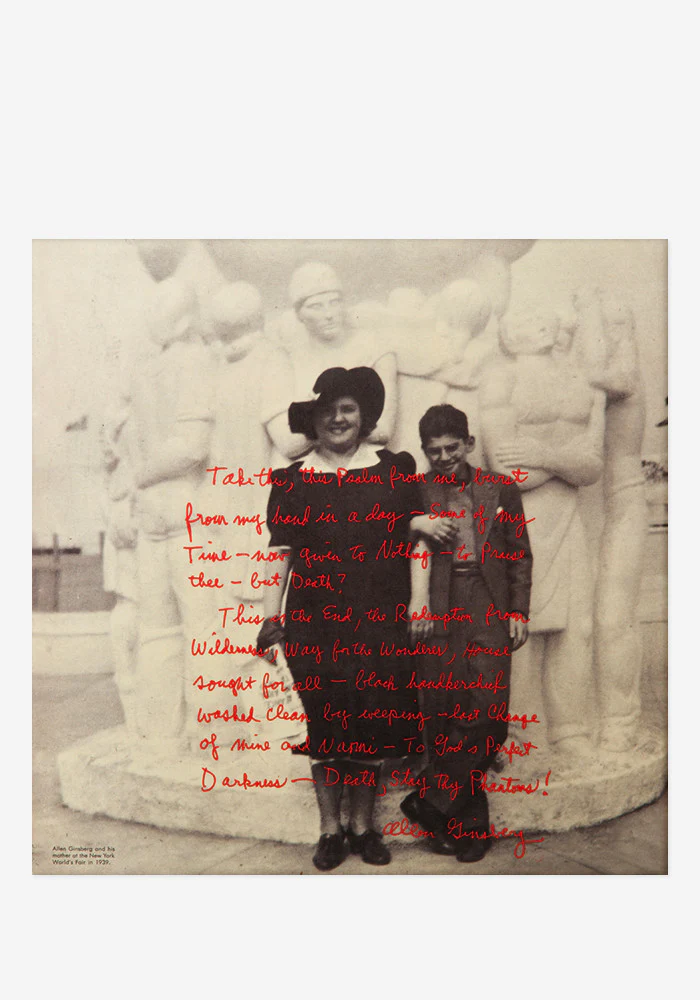 Take this, this Psalm from me, burst
from my hand in a day — Some of my
Time — now given to Nothing — to Praise
thee — but Death?
This is the End, the Redemption from
Wilderness, Way for the Wonderer, House
sought for all — black handkerchief
washed clean by weeping — last Change
of mine and Naomi — To God's Perfect
Darkness — Death, Stay Thy Phantoms!
Allen Ginsberg
Allen Ginsberg and his
mother at the New York
World's Fair in 1939.